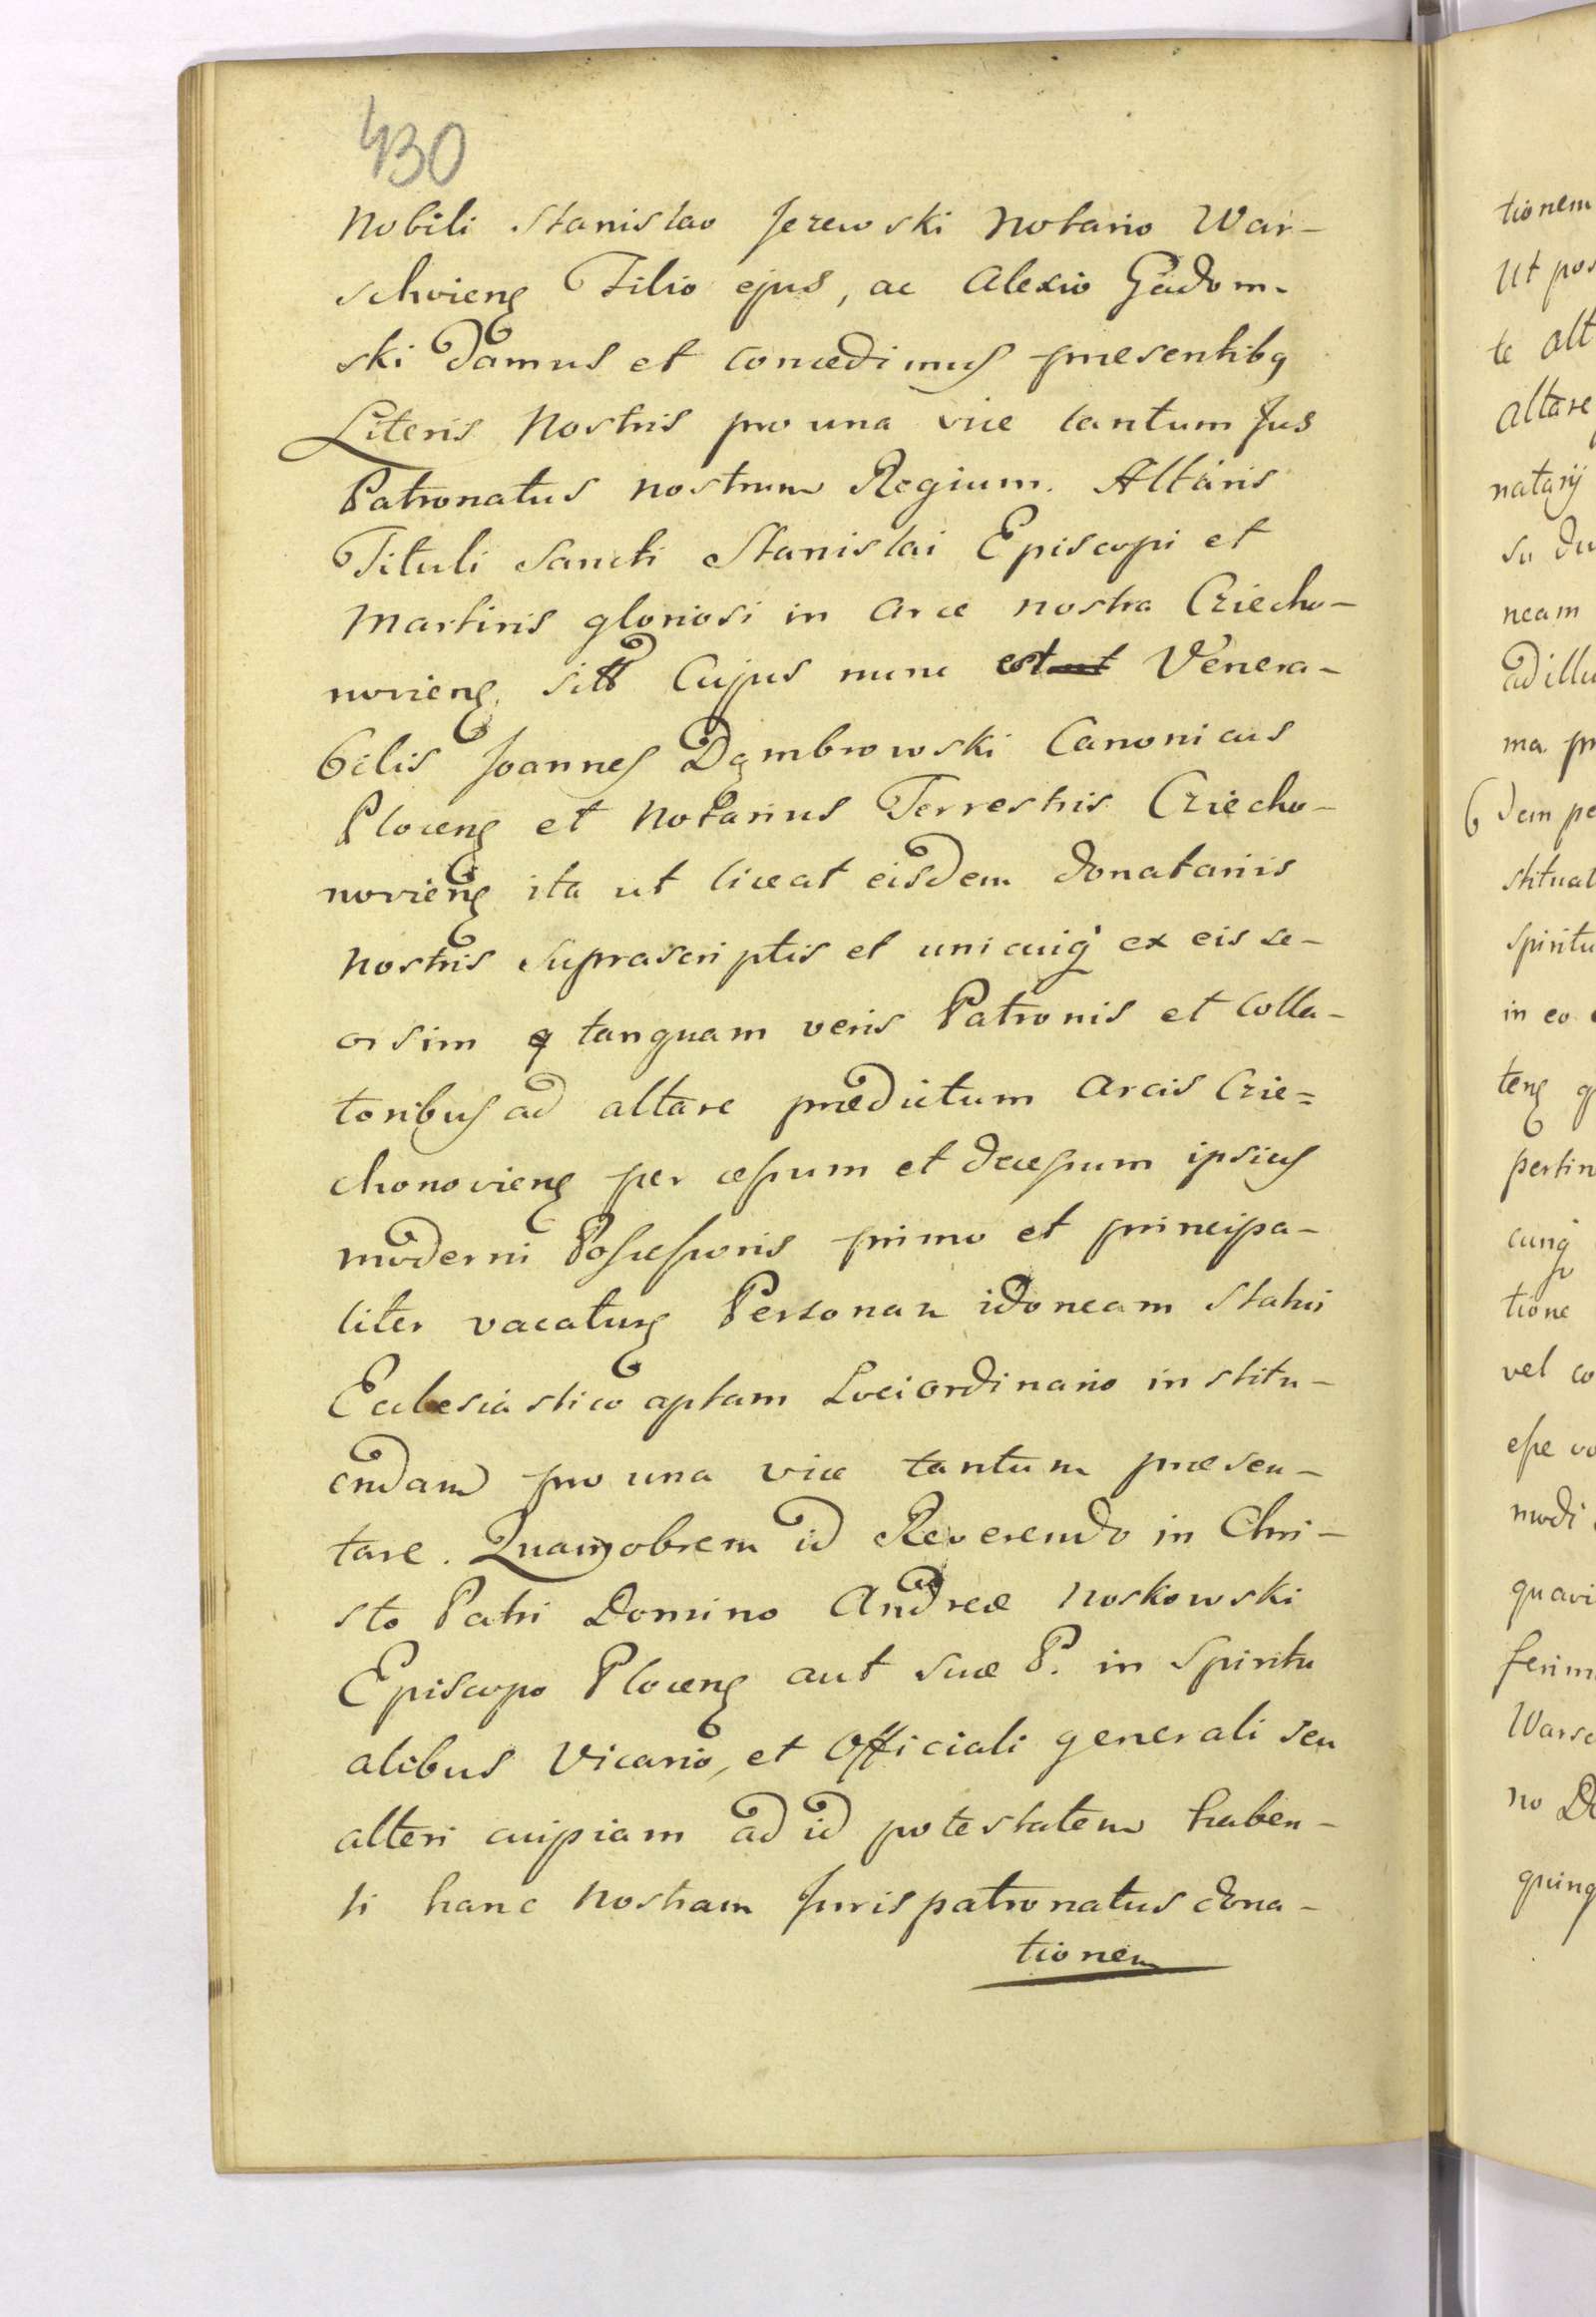 430
Nobili Stanislao Jezewski Notario War-
schvienȝ Filio ejus, ac Alexio Gadom-
ski damus et concedimus præsentibꝫ
Literis Nostris pro una vice tantum Jus
Patronatus nostrum Regium. Altaris
Tituli Sancti Stanislai Episcopi et
Martiris gloriosi in Arce nostra Cziecho-
novienȝ. sitt Cujus nunc est Venera-
bilis Joannes Dąmbrowski Canonicus
Plocenȝ et Notarius Terrestris Cziecho-
novienȝ ita ut liceat eisdem donatariis
nostris suprascriptis et unicuiq ex eis se-
orsim tanquam veris Patronis et Colla-
toribus ad altare prædictum Arcis Czie=
chonovienȝ per cessum et decessum ipsius
moderni Possessoris primo et principa-
liter vacaturȝ Personam idoneam statui
Ecclesiastico aptam Loci ordinario institu-
endam pro una vice tantum præsen-
tare. Quamobrem id Reverendo in Chri-
sto Patri Domino Andreæ Noskowski
Episcopo Plocenȝ aut suæ P. in Spiritu
alibus Vicario, et Officiali generali seu
alteri cuipiam ad id potestatem haben-
ti hanc Nostram Jurispatronatus dona-
tionem
tionem
Ut pos
te alt
altare
natarij
su du
neam
ad illu
ma pr
dem pe
stituat
spiritu
in eo
tenȝ q
pertin
cuiq
tione
vel co
esse vo
modi
quavi
ferim
Warsc
no Do
quinq